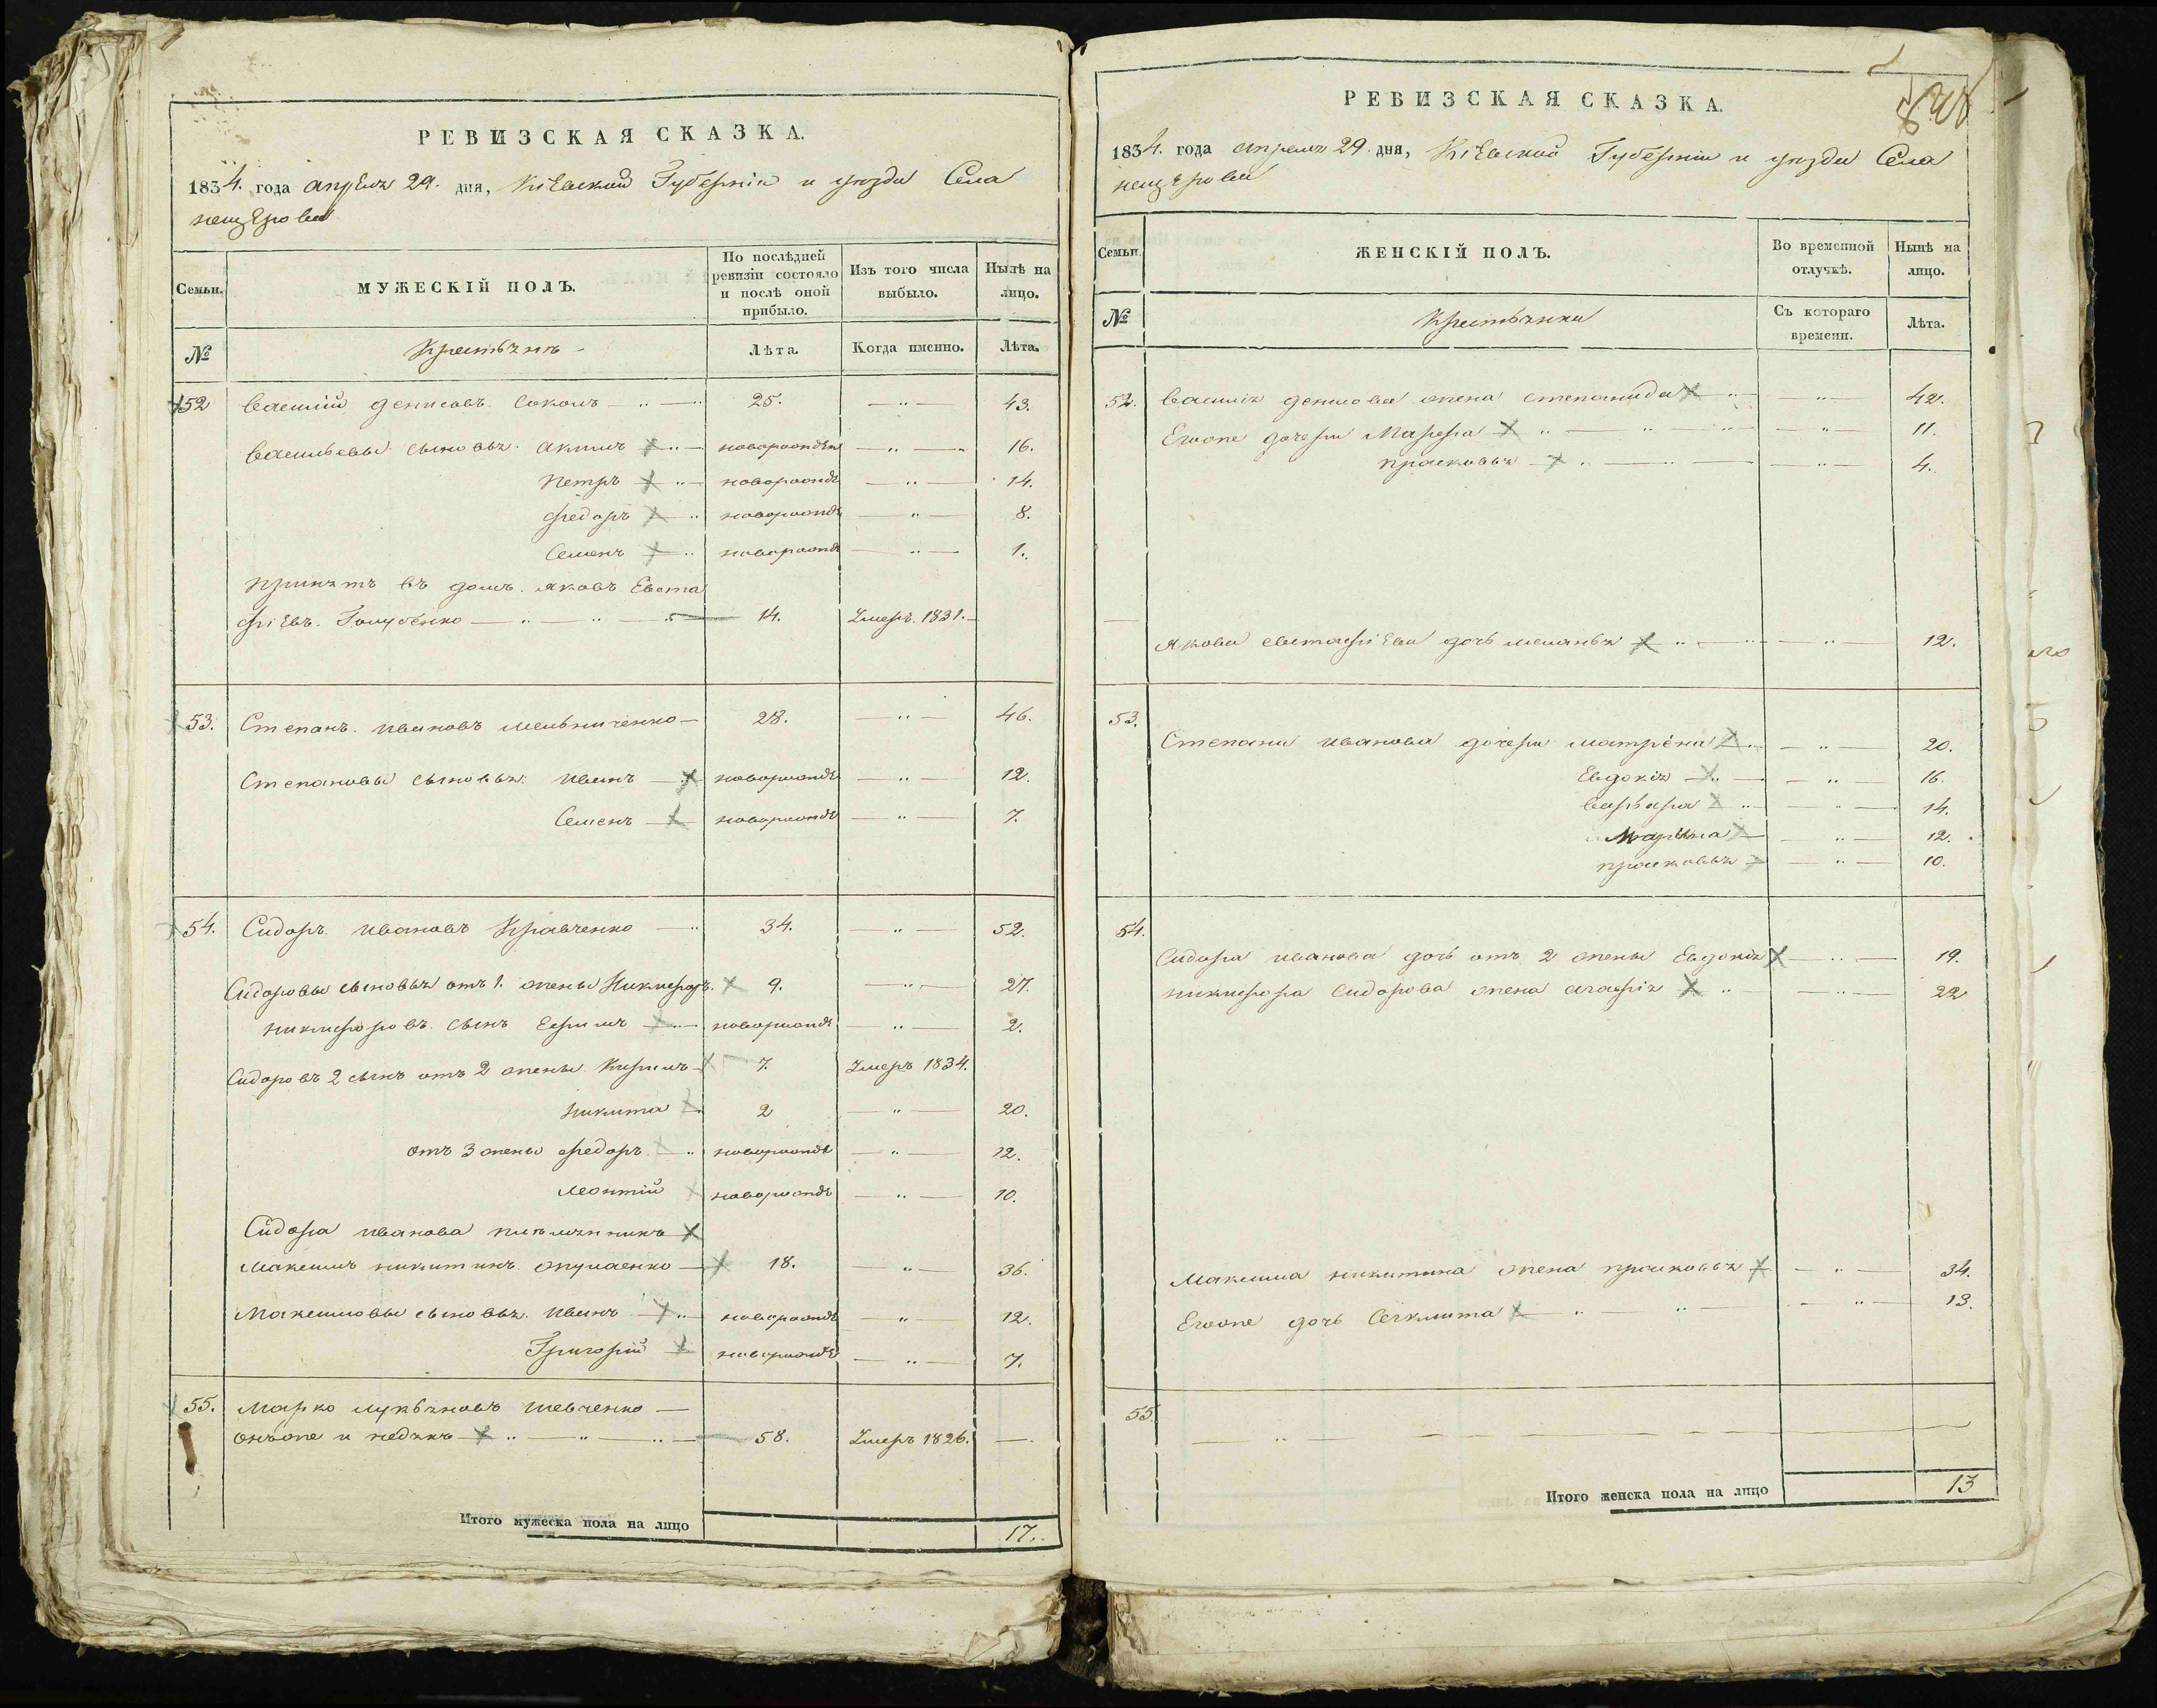 РЕВИЗСКАЯ СКАЗКА.
1834. года апреля 29. дня, Кіевской Губерніи и уезда Села
нещерова
Семьи. МУЖЕСКІЙ ПОЛЪ. По послѣдней ревизіи состояло и послѣ оной прибыло. Изъ того числа выбыло. Нынѣ на лицо.
№ Крестьянъ Лѣта. Когда именно. Лѣта.
52 Василій денисовъ Соколъ 25. 43.
Васильевы сыновья: Акимъ новорожден 16.
Петръ новорожде 14.
федоръ новорожде 8.
Семенъ новорожде 1.
Принятъ въ домъ. Яковъ Евста
фіевъ. Голубенко 14. Умеръ. 1831.
53. Степанъ. Ивановъ Мельниченко 28. 46.
Степановы сыновья: Иванъ новорожде 12.
Семенъ новорожде 7.
54. Сидоръ Ивановъ Кравченко 34. 52.
Сидоровы сыновья отъ 1. жены Никифоръ. 9. 27.
Никифоровъ. сынъ Ефимъ новорожде 2.
Сидоровъ 2 сынъ отъ 2 жены Кирилъ 7. Умеръ 1834.
Никита 2 20.
отъ 3 жены федоръ новорожде 12.
Леонтій новорожде 10.
Сидора Иванова племянникъ
Максимъ никитинъ 18. 36.
Максимовы сыновья. Иванъ новорожде 12.
Григорій новорожде 7.
55. Марко лукьяновъ Шевченко
Онъже и недякъ 58. Умеръ 1826.
Итого мужеска пола на лицо 17.
РЕВИЗСКАЯ СКАЗКА.
1834. года апреля 29. дня, Кіевской Губерніи и уезда Села
нещерова
Семьи. ЖЕНСКІЙ ПОЛЪ. Во временной отлучкѣ. Нынѣ на лицо.
№ Крестьянки Съ котораго времени. Лѣта.
52. Василія денисова жена степанида 42.
Егоже дочери Марфа 11.
прасковья 4.
Якова евстафіева дочь меланья 12.
53.
Степана иванова дочери матрёна 20.
Евдокія 16.
варвара 14.
Марина 12.
прасковья 10.
54.
Сидора иванова дочь отъ 2 жены Евдокія 19.
никифора сидорова жена агафія 22
Максима никитина жена прасковья 34.
Егоже дочь 13.
55.
Итого женска пола на лицо 13